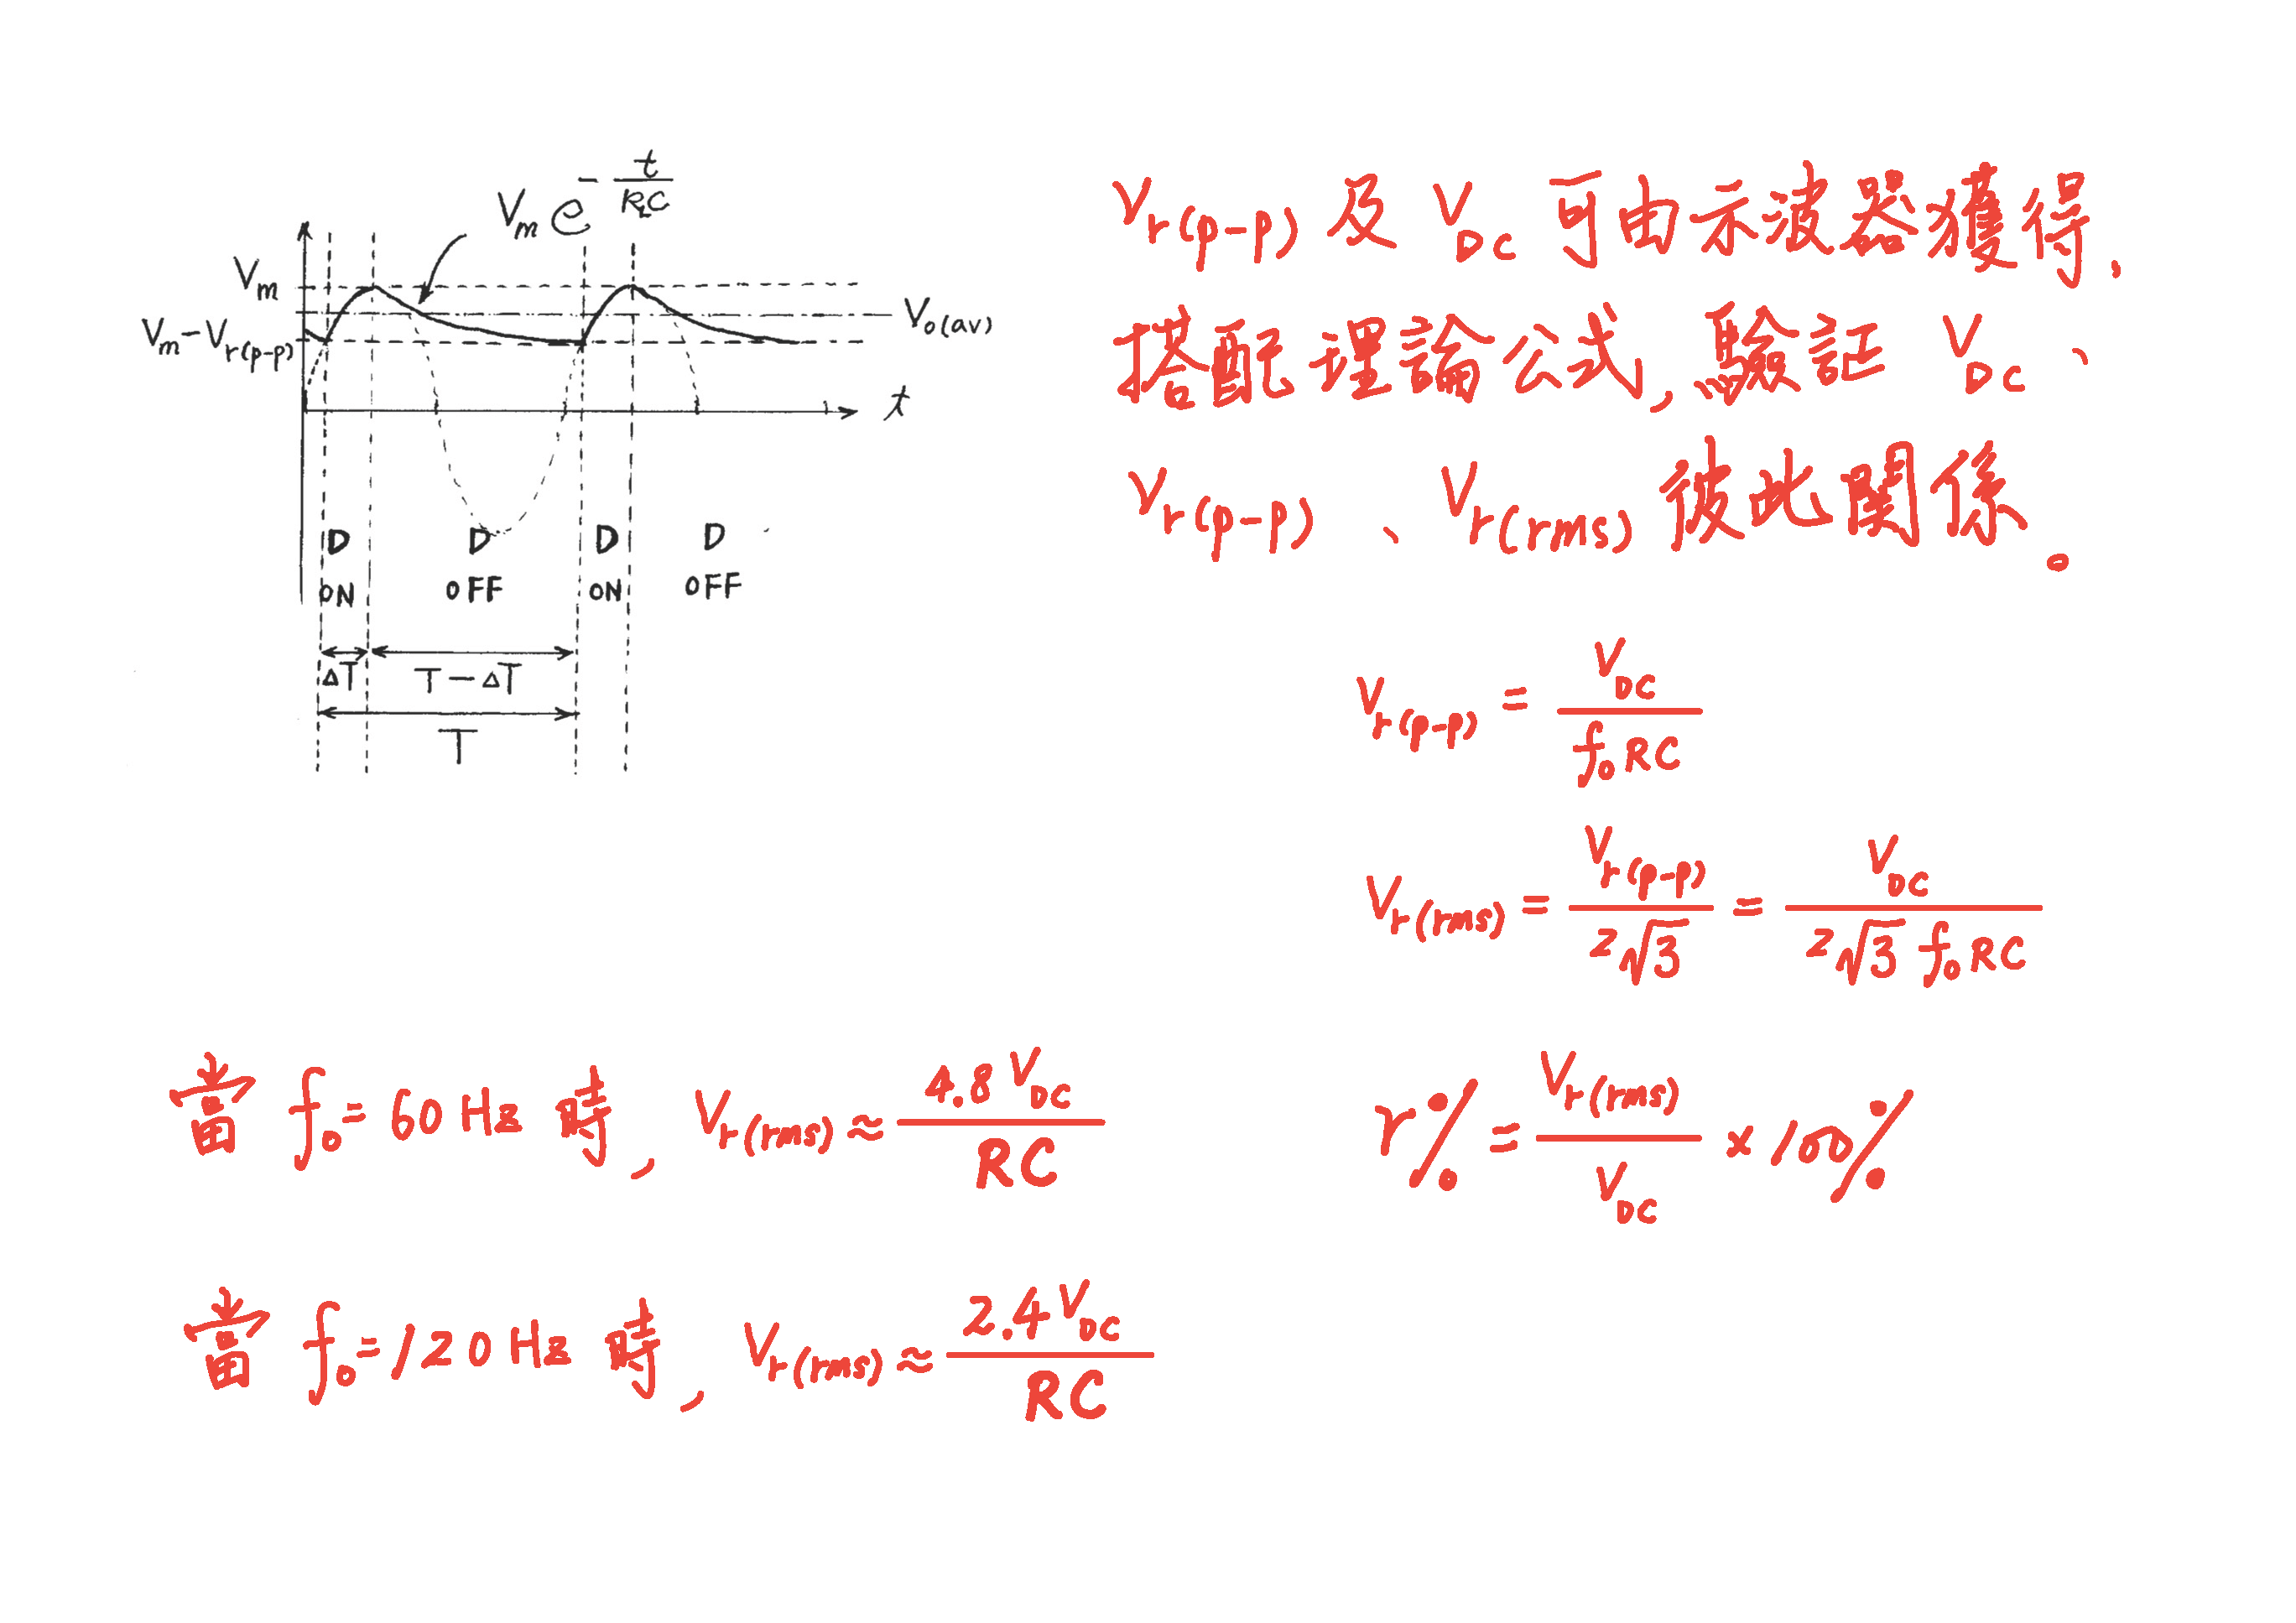 V_m e^{-t/R_LC}
V_m
V_m-V_{r(p-p)}
V_{o(av)}
t
D ON
D OFF
D ON
D OFF
ΔT
T-ΔT
T
V_{r(p-p)} 及 V_{DC} 可由示波器獲得,
搭配理論公式,驗証 V_{DC}、
V_{r(p-p)}、V_{r(rms)} 彼此関係。
V_{r(p-p)} = V_{DC} / f_0RC
V_{r(rms)} = V_{r(p-p)} / 2√3 = V_{DC} / 2√3 f_0RC
r% = V_{r(rms)} / V_{DC} × 100%
當 f_0=60Hz 時, V_{r(rms)} ≈ 4.8V_{DC} / RC
當 f_0=120Hz 時, V_{r(rms)} ≈ 2.4V_{DC} / RC